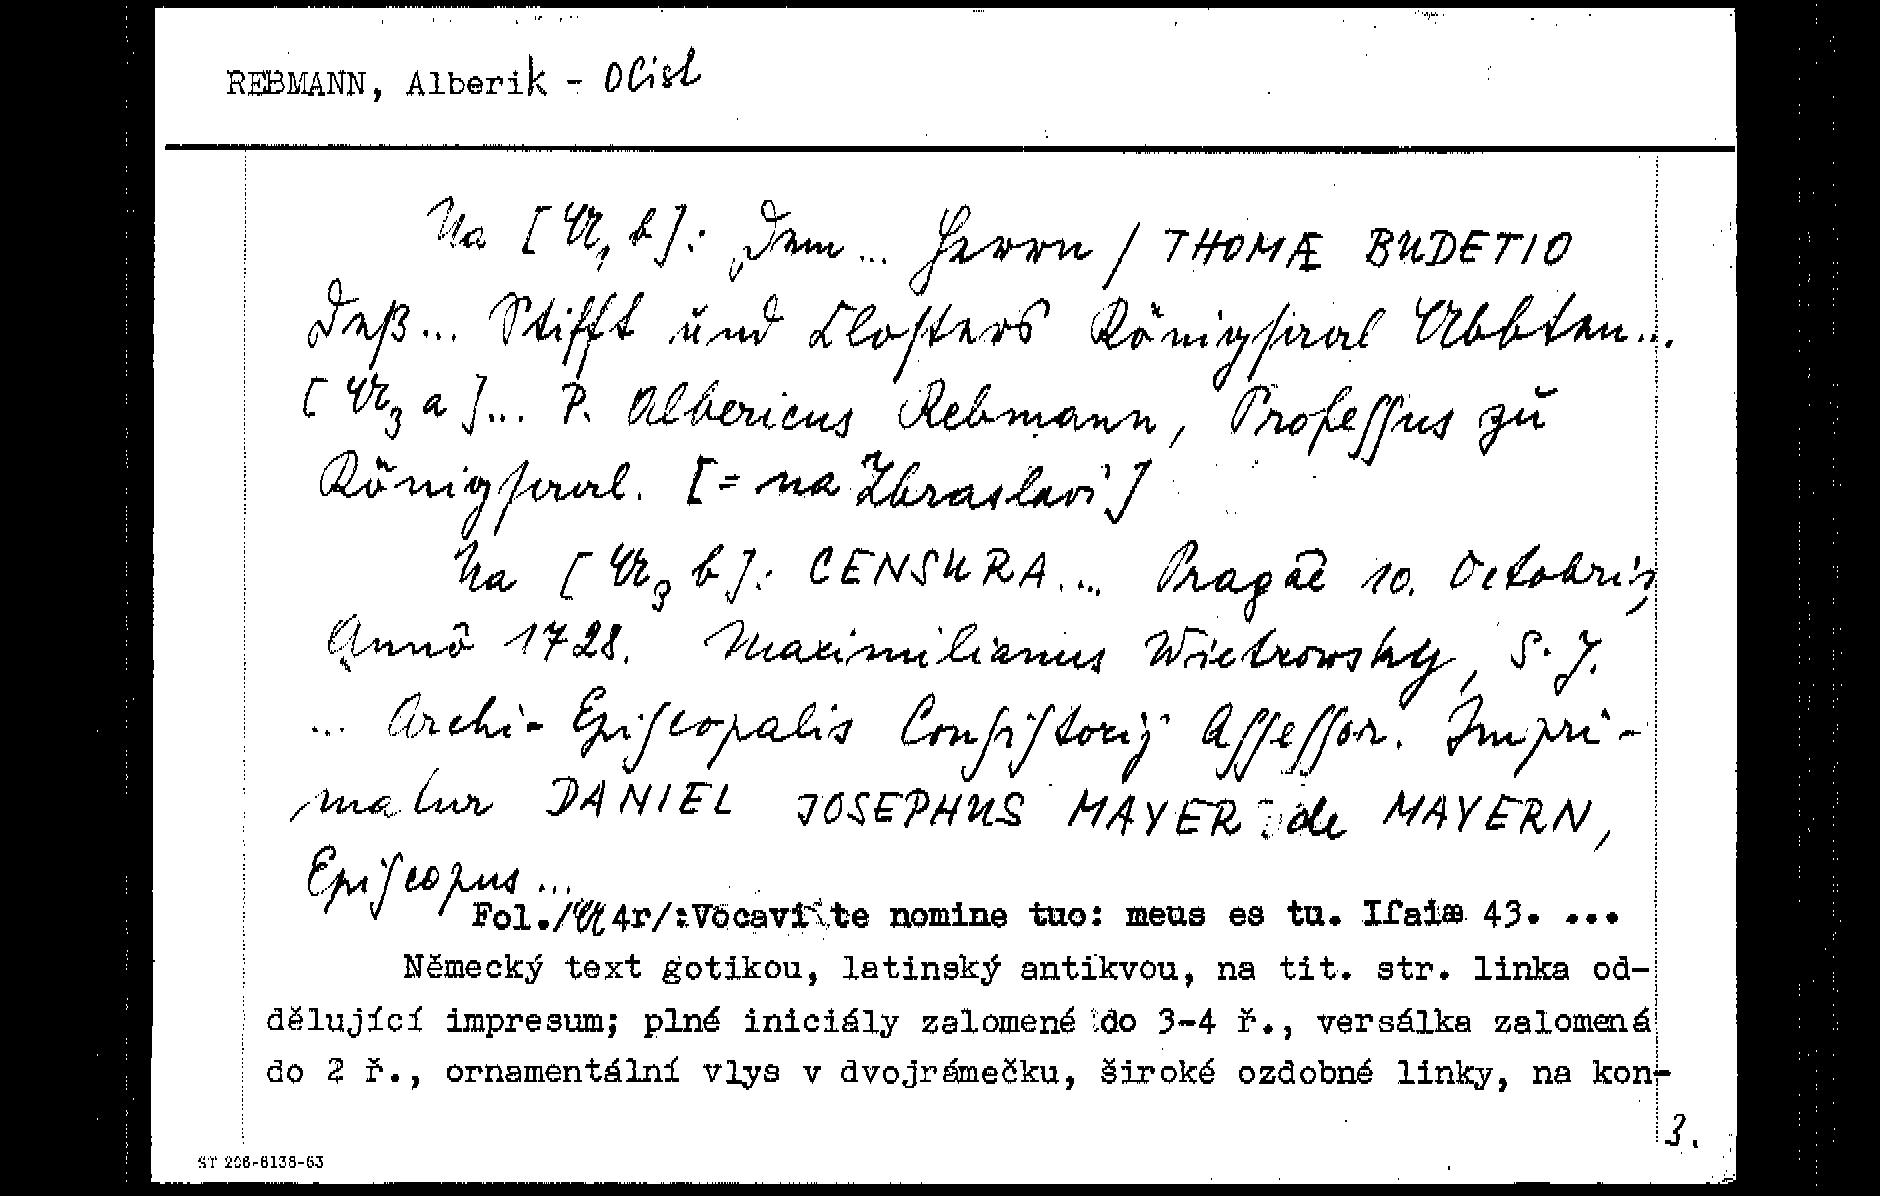 REBMANN, Alberik - OCist
Na [𝔄₁ b]: Dem ... Herrn / THOMÆ BUDETIO
Deß... Stifft und Closters Königsaal Abbten...
[𝔄₃ a]... P. Albericus Rebmann, Professus zu
Königsaal. [= na Zbraslavi]
Na [𝔄₃ b]: CENSURA.... Pragæ 10. Octobris,
Annô 1728. Maximilianus Wietrowsky, S. J.
... Archi-Episcopalis Consistorij Assessor. Impri-
matur DANIEL JOSEPHUS MAYER de MAYERN,
Episcopus ...
Fol./𝔄4r/:Vocavi te nomine tuo: meus es tu. Isaiæ 43. ...
Německý text gotikou, latinský antikvou, na tit. str. linka od-
dělující impresum; plné iniciály zalomené do 3-4 ř., versálka zalomená
do 2 ř., ornamentální vlys v dvojrámečku, široké ozdobné linky, na kon-
3.
ST 206-6138-63